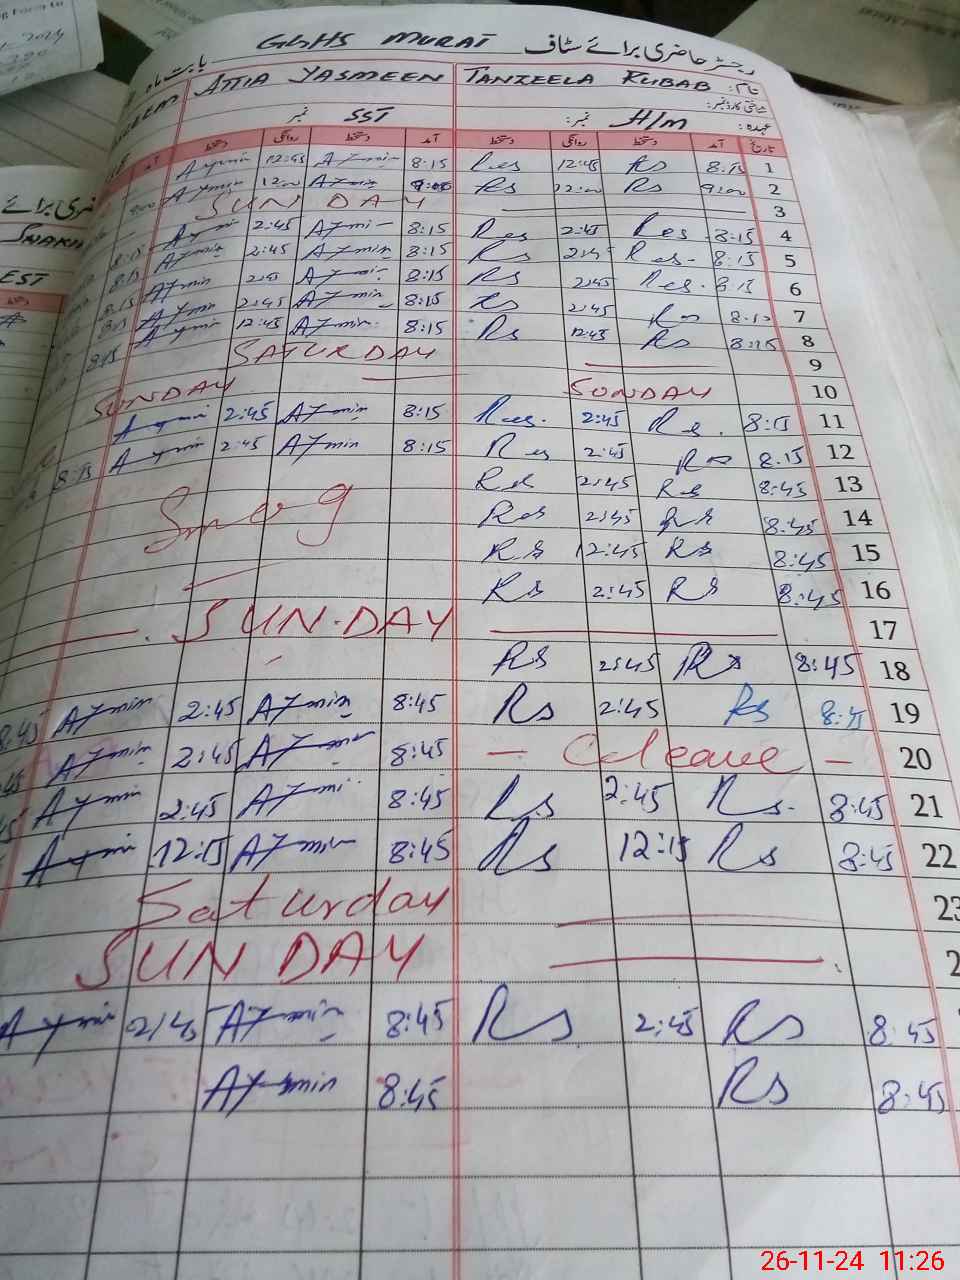 GGHS MURAT رجسٹر حاضری برائے سٹاف
بابت ماہ
نام: TANZEELA RUBAB ATTIA YASMEEN
شناختی کارڈ نمبر:
عہدہ: H/m نمبر: SST نمبر:
تاریخ آمد دستخط روانگی دستخط آمد دستخط روانگی دستخط آمد
1 8:15 Rs 12:45 Res 8:15 A7min 12:45 Aymin
2 9:00 Rs 12:00 Rs 9:00 A7min 12:00 A7min
3 SUNDAY
4 8:15 Res 2:45 Res 8:15 A7mi 2:45 Aymin
5 8:15 Res. 2:45 Rs 8:15 A7min 2:45 A7min 8:15
6 8:15 Res. 2:45 Rs 8:15 A7min 2:45 A7min 8:15
7 8:15 Rs 2:45 Rs 8:15 A7min 2:45 A7min 8:15
8 8:15 Rs 12:45 Rs 8:15 A7min 12:45 Aymin 8:15
9 SATURDAY
10 SUNDAY SUNDAY
11 8:15 Rs. 2:45 Res. 8:15 A7min 2:45 Aymin
12 8.15 Rs 2:45 Res 8:15 A7min 2:45 Aymin 8:15
13 8:45 Rs 2:45 Rs
14 8:45 Rs 2:45 Rs Smog
15 8:45 Rs 12:45 Rs
16 8:45 Rs 2:45 Rs
17 SUN.DAY
18 8:45 Rs 2:45 Rs
19 8:45 Rs 2:45 Rs 8:45 A7min 2:45 A7min 8:45
20 - C leave - 8:45 A7min 2:45 A7min
21 8:45 Rs. 2:45 Rs 8:45 A7mi 2:45 A7min
22 8:45 Rs 12:15 Rs 8:45 A7min 12:15 Aymin
23 Saturday
2 SUNDAY
8:45 Rs 2:45 Rs 8:45 A7min 2:45 Aymin
8:45 Rs 8:45 A7min
EST
2024
26-11-24 11:26